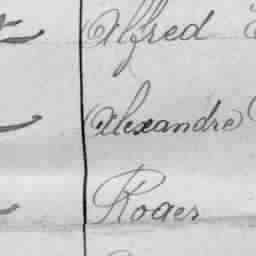 Alfred
Alexandre
Roger